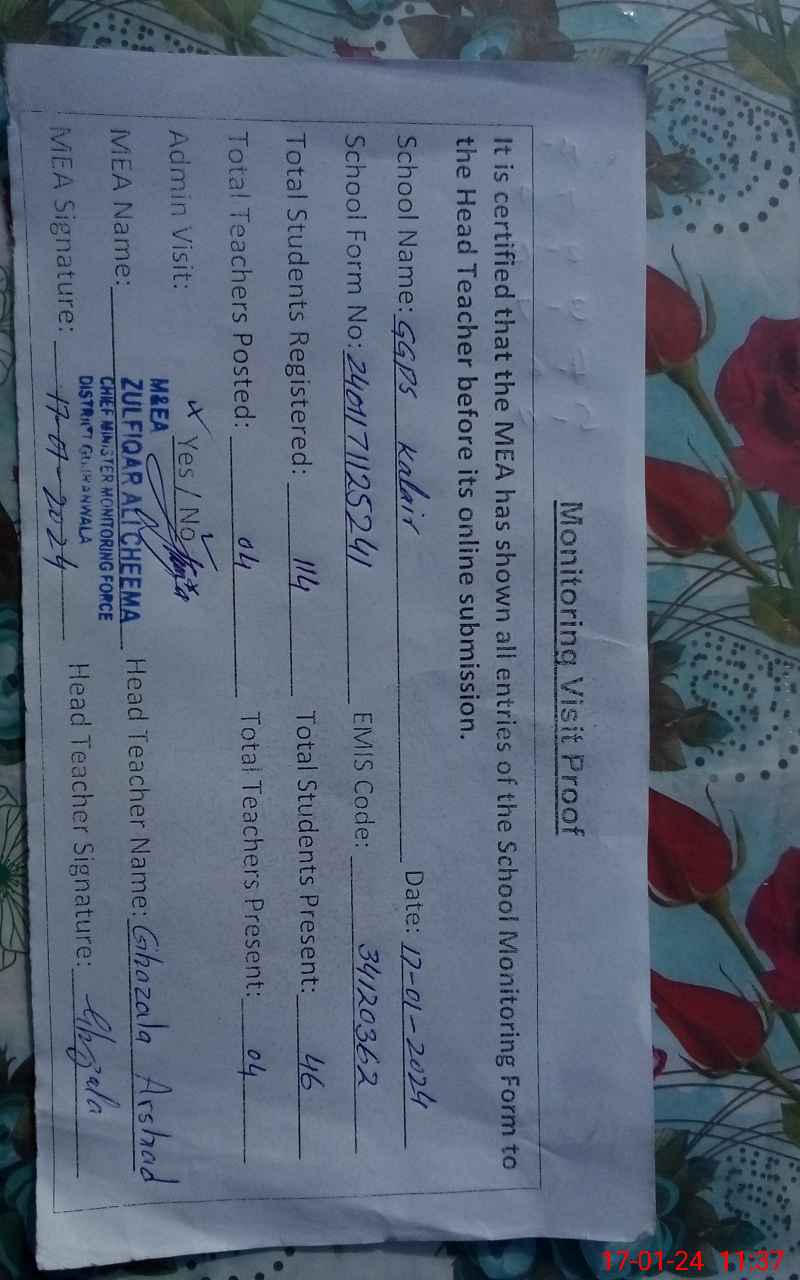 Monitoring Visit Proof
It is certified that the MEA has shown all entries of the School Monitoring Form to
the Head Teacher before its online submission.
School Name: GGPS Kalair Date: 17-01-2024
School Form No: 2401171125241 EMIS Code: 34120362
Total Students Registered: 114 Total Students Present: 46
Total Teachers Posted: 04 Total Teachers Present: 04
Admin Visit: Yes / No
M&EA
MEA Name: ZULFIQAR ALI CHEEMA Head Teacher Name: Ghazala Arshad
CHIEF MINISTER MONITORING FORCE
DISTRICT GUJRANWALA
MEA Signature: 17-01-2024 Head Teacher Signature: Ghazala
17-01-24 11:37